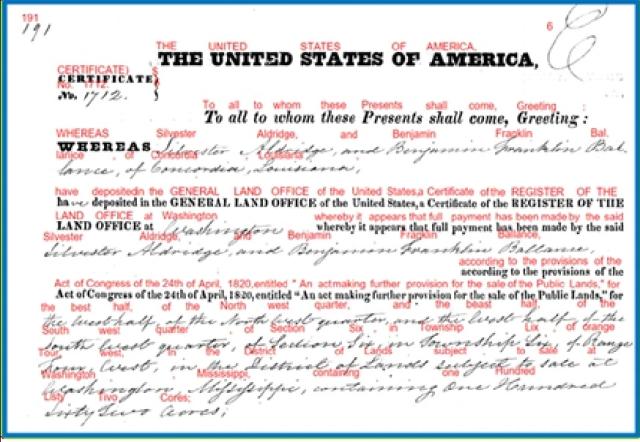 191
191
6
THE UNITED STATES OF AMERICA,
THE UNITED STATES OF AMERICA,
CERTIFICATE)
CERTIFICATE
No. 1712.
No. 1712.
To all to whom these Presents shall come, Greeting :
To all to whom these Presents shall come, Greeting :
WHEREAS Silvester Aldridge, and Benjamin Franklin Bal.
WHEREAS Silvester Aldridge, and Benjamin Franklin Bal
lance, of Concordia, Louisiana,
lance, of Concordia, Louisiana,
have depositedin the GENERAL LAND OFFICE of the United States,a Certificate of the REGISTER OF THE
have deposited in the GENERAL LAND OFFICE of the United States, a Certificate of the REGISTER OF THE
LAND OFFICE at Washington whereby it appears that full payment has been made by the said
LAND OFFICE at Washington whereby it appears that full payment has been made by the said
Silvester Aldridge, and Benjamin Franklin Ballance,
Silvester Aldridge, and Benjamin Franklin Ballance,
according to the provisions of the
according to the provisions of the
Act of Congress of the 24th of April, 1820,entitled "An actmaking further provision for the sale of the Public Lands," for
Act of Congress of the 24th of April, 1820, entitled "An act making further provision for the sale of the Public Lands," for
the best half, of the North west quarter, and the beast half of the
the West half of the North West quarter, and the West half of the
South west quarter of Section Six in Township Lix of orange
South West quarter, of Section Six, in Township Six, of Range
Tour, west, In the District of Lands subject to sale at
Four West, in the District of Lands subject to sale at
Washington Mississippi, containing one Hundred
Washington Mississippi, containing One Hundred
Listy Tivo Cores;
Sixty Two Acres;